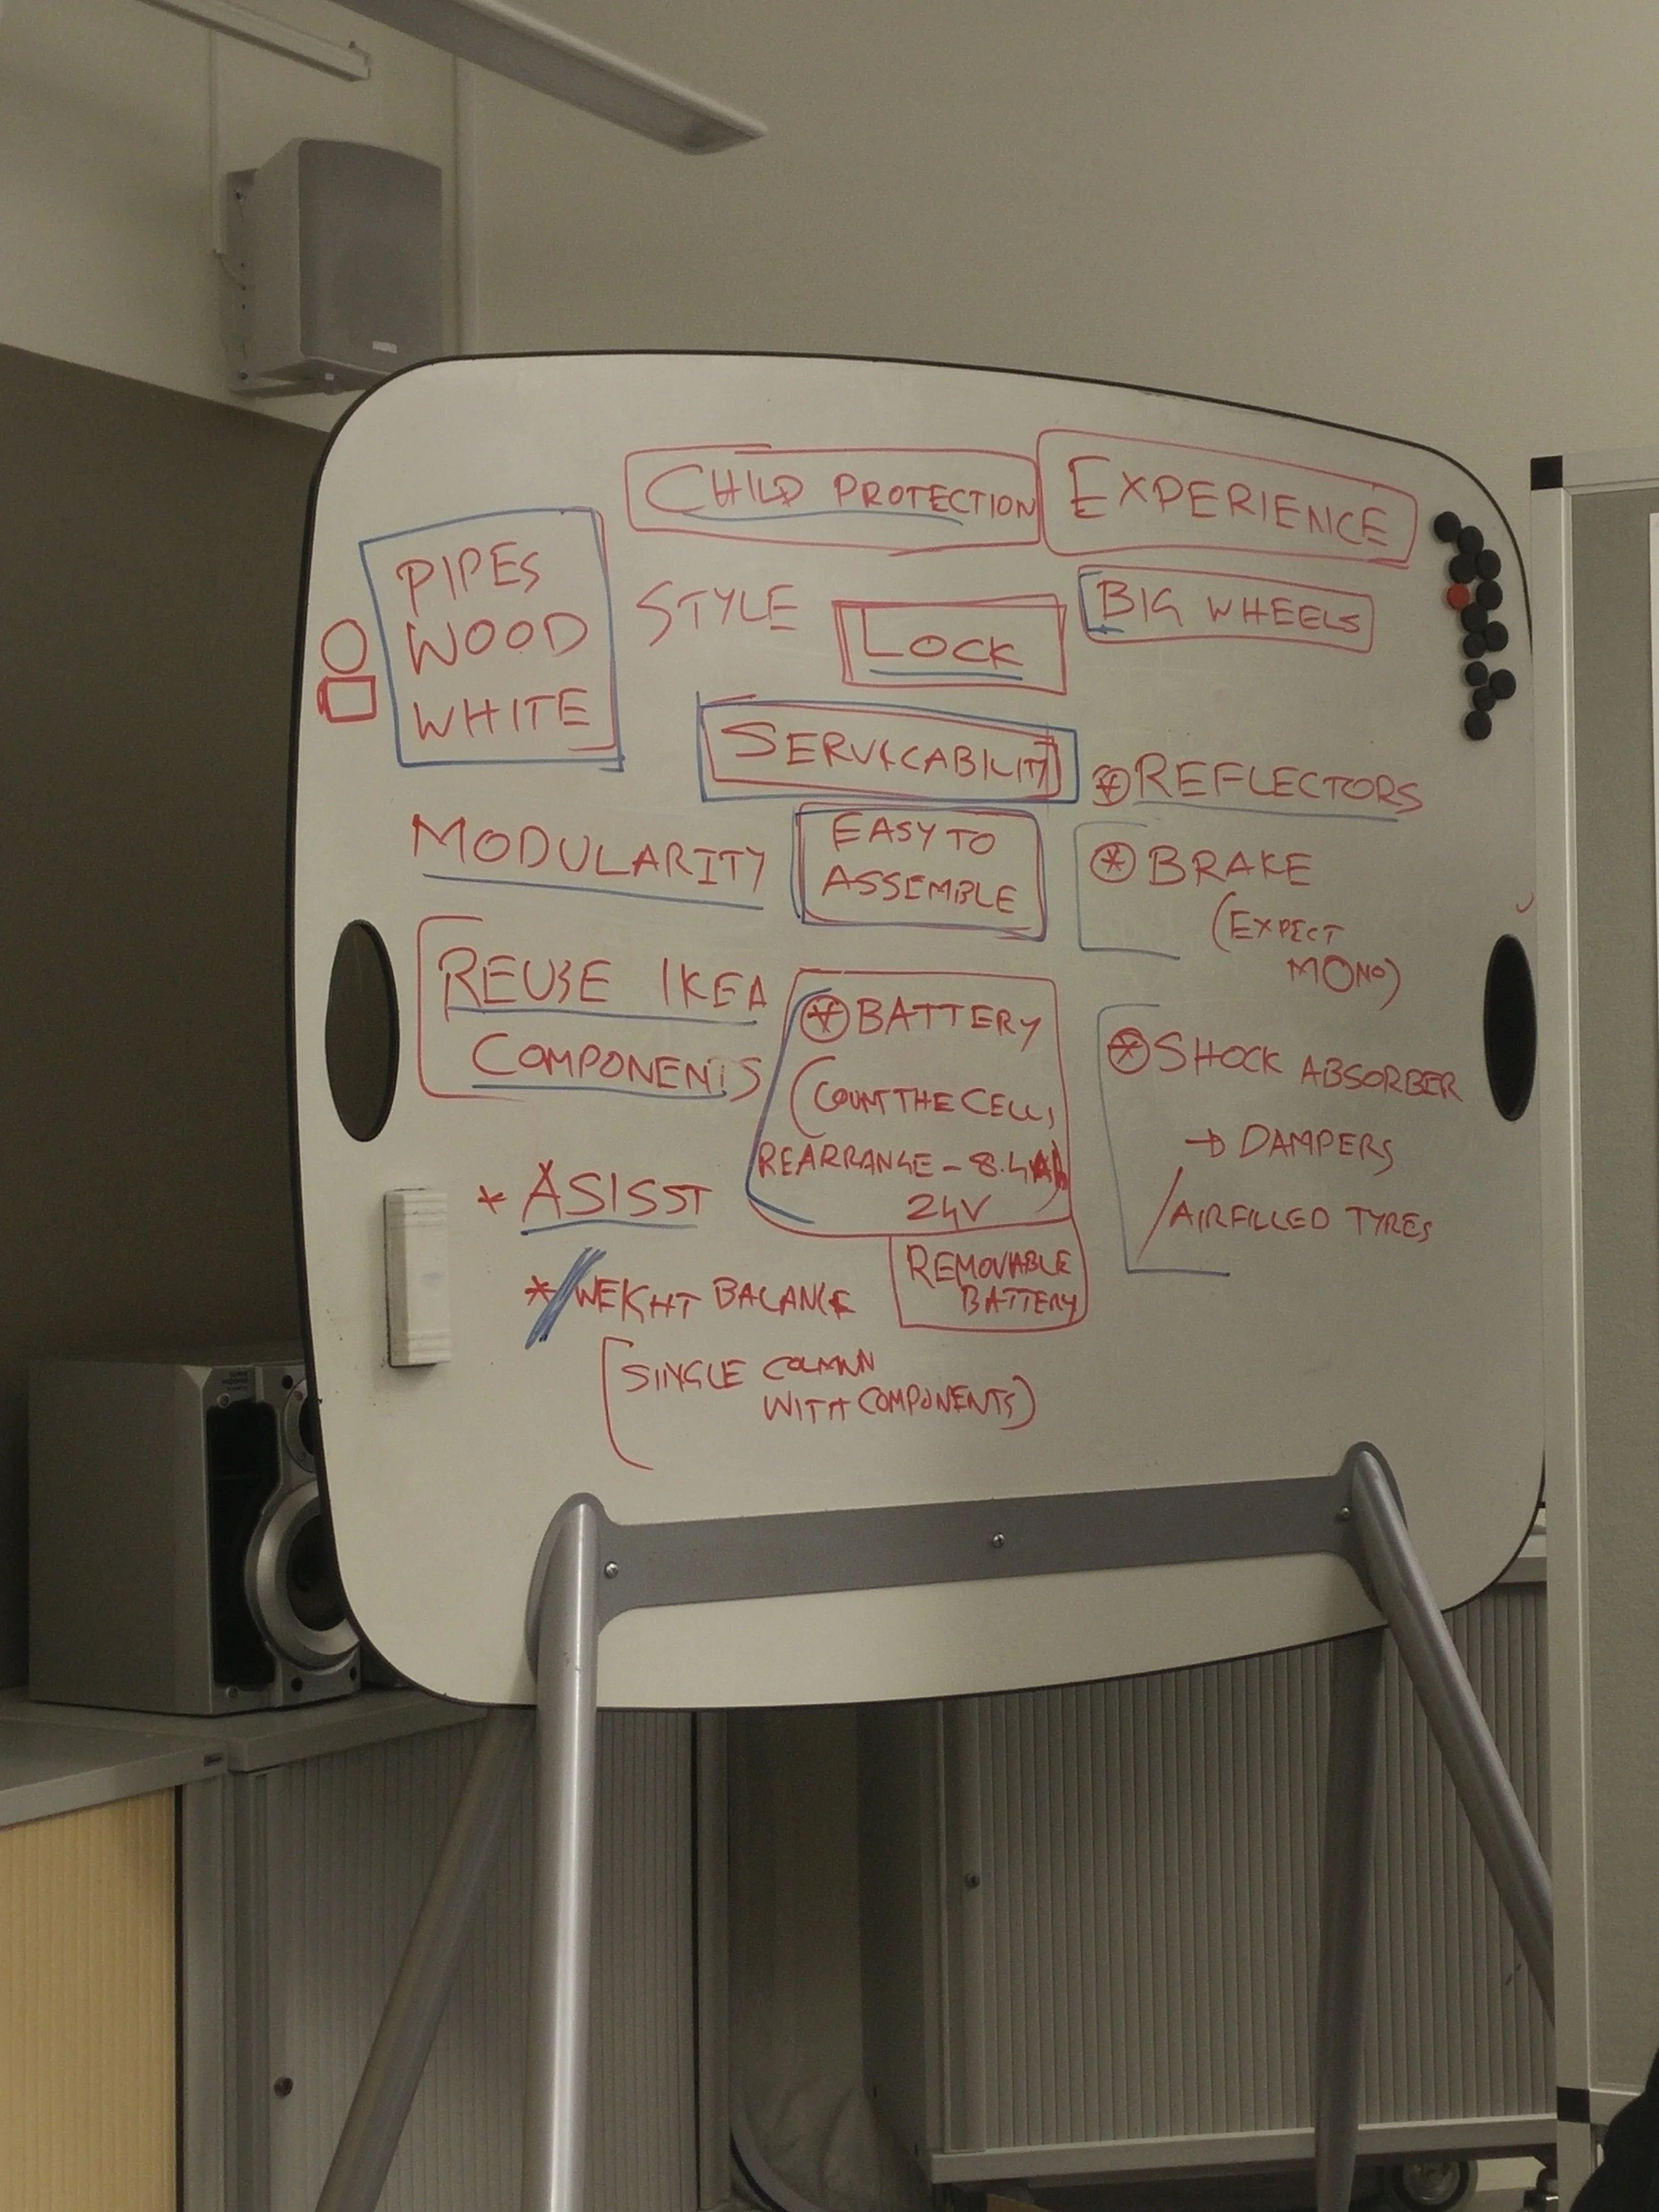 CHILD PROTECTION
EXPERIENCE
PIPES
WOOD
WHITE
STYLE
LOCK
BIG WHEELS
SERVICABILITY
REFLECTORS
MODULARITY
EASY TO
ASSEMBLE
BRAKE
(EXPECT
MONO)
REUSE IKEA
COMPONENTS
BATTERY
(COUNT THE CELLS,
REARRANGE - 8.4Ah)
24V
REMOVABLE
BATTERY
SHOCK ABSORBER
→ DAMPERS
/ AIRFILLED TYRES
* ASISST
* WEIGHT BALANCE
(SINGLE COLUMN
WITH COMPONENTS)